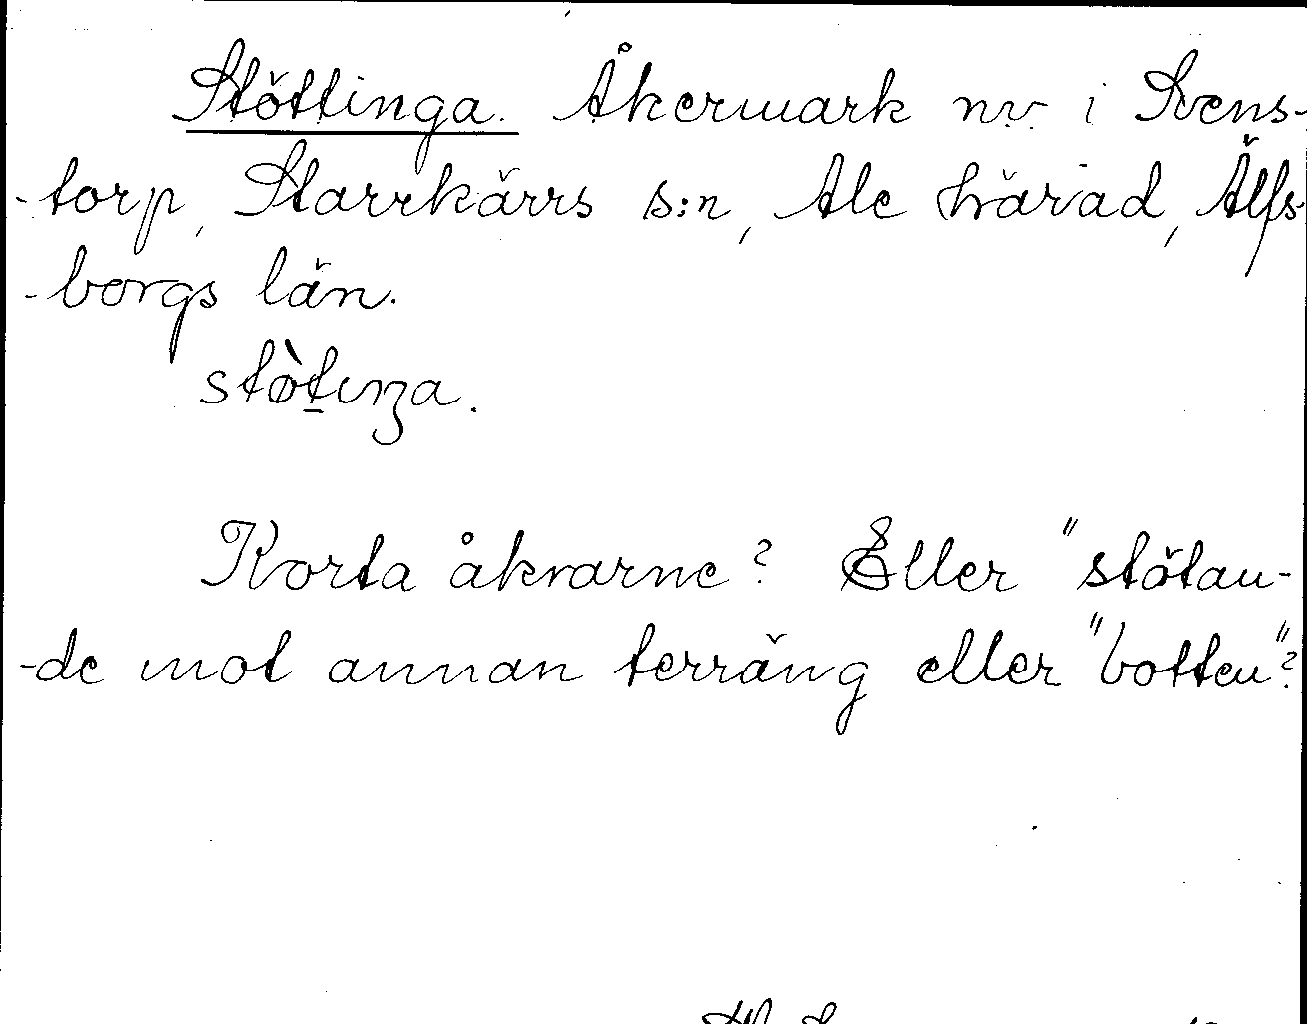 Stöttinga. Åkermark nv. i Svens-
-torp, Starrkärrs s:n, Ale härad, Älfs-
-borgs län.
støt̠ıŋa.
Korta åkrarne? Eller "stötan-
-de mot annan terräng eller "botten"?